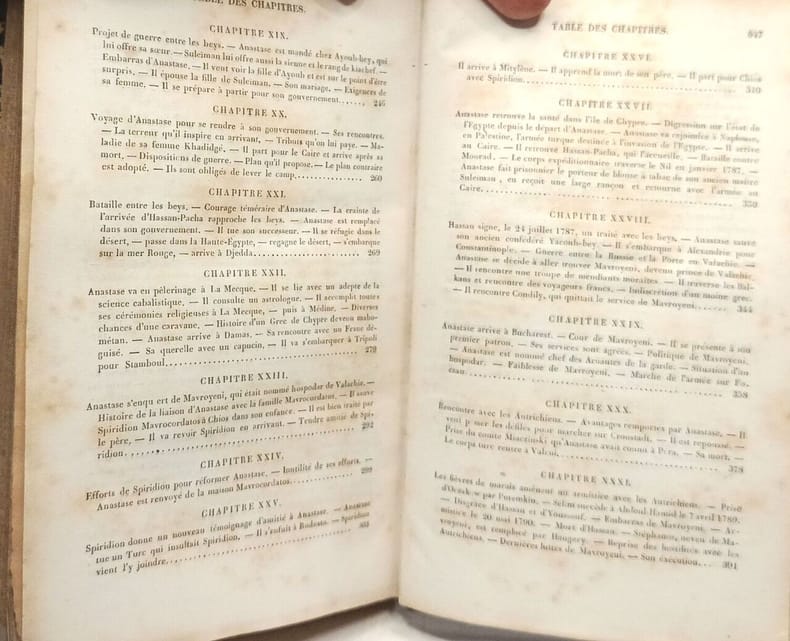 TABLE DES CHAPITRES.
CHAPITRE XIX.
Projet de guerre entre les beys. — Anastase est mandé chez Ayoub-bey, qui
lui offre sa sœur. — Suleiman lui offre aussi la sienne et le rang de kiachef. —
Embarras d'Anastase. — Il veut voir la fille d'Ayoub et est sur le point d'être
surpris. — Il épouse la fille de Suleiman. — Son mariage. — Exigences de
sa femme. — Il se prépare à partir pour son gouvernement...... 246
CHAPITRE XX.
Voyage d'Anastase pour se rendre à son gouvernement. — Ses rencontres.
— La terreur qu'il inspire en arrivant, — Tributs qu'on lui paye. — Ma-
ladie de sa femme Khadidgé. — Il part pour le Caire et arrive après sa
mort, — Dispositions de guerre. — Plan qu'il propose. — Le plan contraire
est adopté. — Ils sont obligés de lever le camp.................. 260
CHAPITRE XXI.
Bataille entre les beys. — Courage téméraire d'Anastase. — La crainte de
l'arrivée d'Hassan-Pacha rapproche les beys. — Anastase est remplacé
dans son gouvernement. — Il tue son successeur. — Il se réfugie dans le
désert, — passe dans la Haute-Égypte, — regagne le désert, — s'embarque
sur la mer Rouge, — arrive à Djedda...................... 269
CHAPITRE XXII.
Anastase va en pèlerinage à La Mecque. — Il se lie avec un adepte de la
science cabalistique. — Il consulte un astrologue. — Il accomplit toutes
ses cérémonies religieuses à La Mecque, — puis à Médine. — Diverses
chances d'une caravane, — Histoire d'un Grec de Chypre devenu maho-
métan. — Anastase arrive à Damas. — Sa rencontre avec un Frène dé-
guisé. — Sa querelle avec un capucin, — Il va s'embarquer à Tripoli
pour Stamboul.................................... 279
CHAPITRE XXIII.
Anastase s'enquert de Mavroyeni, qui était nommé hospodar de Valachie. —
Histoire de la liaison d'Anastase avec la famille Mavrocordatos. — Il sauve
Spiridion Mavrocordatos à Chios dans son enfance. — Il est bien traité par
le père, — Il va revoir Spiridion en arrivant. — Tendre amitié de Spi-
ridion........................................ 292
CHAPITRE XXIV.
Efforts de Spiridion pour réformer Anastase. — Inutilité de ses efforts. —
Anastase est renvoyé de la maison Mavrocordatos............... 299
CHAPITRE XXV.
Spiridion donne un nouveau témoignage d'amitié à Anastase. — Anastase
tue un Turc qui insultait Spiridion. — Il s'enfuit à — Spiridion
vient l'y joindre.................................
TABLE DES CHAPITRES. 647
CHAPITRE XXVI.
Il arrive à Mitylène. — Il apprend la mort de son père. — Il part pour Chios
avec Spiridion.............................. 310
CHAPITRE XXVII.
Anastase retrouve la santé dans l'île de Chypre. — Digression sur l'état de
l'Égypte depuis le départ d'Anastase. — Anastase va rejoindre à Naplouse,
en Palestine, l'armée turque destinée à l'invasion de l'Égypte. — Il arrive
au Caire. — Il retrouve Hassan-Pacha, qui l'accueille. — Bataille contre
Mourad. — Le corps expéditionnaire traverse le Nil en janvier 1787. —
Anastase fait prisonnier le porteur de blouse à tabac de son ancien maître
Suleiman, en reçoit une large rançon et retourne avec l'armée au
Caire................................ 330
CHAPITRE XXVIII.
Hassan signe, le 24 juillet 1787, un traité avec les beys. — Anastase sauve
son ancien confédéré Yacoub-bey. — Il s'embarque à Alexandrie pour
Constantinople. — Guerre entre la Russie et la Porte en Valachie. —
Anastase se décide à aller trouver Mavroyeni, devenu prince de Valachie.
— Il rencontre une troupe de mendiants moraïtes. — Il traverse les Bal-
kans et rencontre des voyageurs francs. — Indiscrétion d'un moine grec.
— Il rencontre Condily, qui quittait le service de Mavroyeni...... 344
CHAPITRE XXIX.
Anastase arrive à Bucharest. — Cour de Mavroyeni. — Il se présente à son
premier patron. — Ses services sont agréés. — Politique de Mavroyeni.
— Anastase est nommé chef des Arnautes de la garde. — Situation d'un
hospodar. — Faiblesse de Mavroyeni. — Marche de l'armée sur Fo,
................................ 358
CHAPITRE XXX.
Rencontre avec les Autrichiens. — Avantages remportés par Anastase. — Il
veut passer les défilés pour marcher sur Cronstadt. — Il est repoussé. —
Prise du comte qu'Anastase avait connu à Pera. — Sa mort. —
Le corps turc rentre à Valeni............................ 378
CHAPITRE XXXI.
Les fièvres de marais amènent un armistice avec les Autrichiens. — Prise
par Potemkin. — Selim succède à Abdoul-Hamid le 7 avril 1789.
— Disgrâce d'Hassan et d'Youssouf. — Embarras de Mavroyeni. — Ar-
mistice le 20 mai 1790. — Mort d'Hassan. — Stéphanos, neveu de Ma-
vroyeni, est remplacé par Hangery. — Reprise des hostilités avec les
Autrichiens. — Dernières luttes de Mavroyeni. — Son exécution... 391